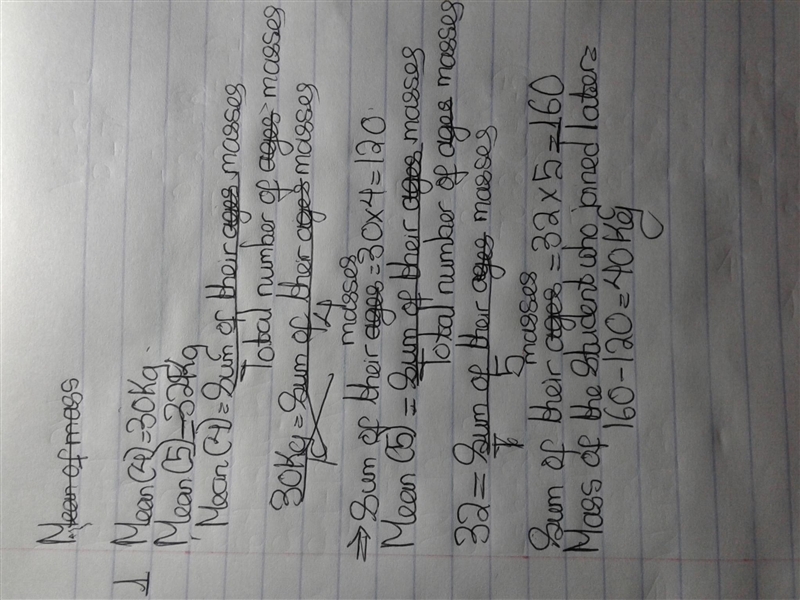 Mean of mass
1 Mean(4)=30Kg.
Mean(5)=32Kg
Mean(4)=Sum of their ages masses
Total number of ages masses
30Kg=Sum of their ages masses
4
masses
⇒ Sum of their ages=30x4=120.
Mean(5) = Sum of their ages masses
Total number of ages masses
32=Sum of their ages masses
5
masses
Sum of their ages=32x5=160
Mass of the Student who joined later=
160-120=40Kg